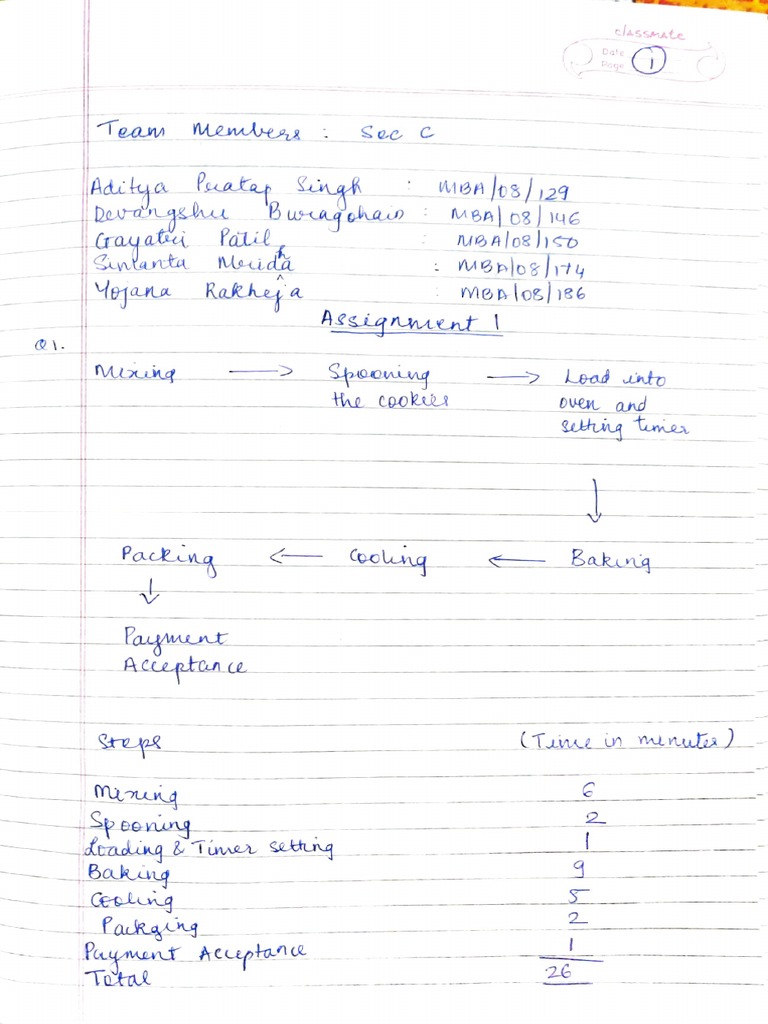 classmate
Date
Page 1
Team Members : Sec C
Aditya Pratap Singh : MBA/08/129
Devangshu Buragohain : MBA/08/146
Gayatri Patil : MBA/08/150
Mridha : MBA/08/174
Yojana Rakheja : MBA/08/186
Assignment 1
Q1.
Mixing → Spooning the cookies → Load into oven and setting timer
↓
Packing ← Cooling ← Baking
↓
Payment
Acceptance
Steps (Time in minutes)
Mixing 6
Spooning 2
Loading & Timer setting 1
Baking 9
Cooling 5
Packging 2
Payment Acceptance 1
Total 26